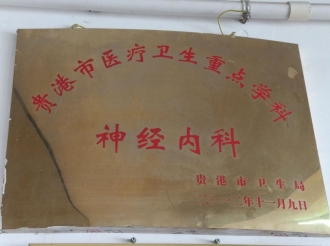 贵港市医疗卫生重点学科
神经内科
贵港市卫生局
年十一月九日